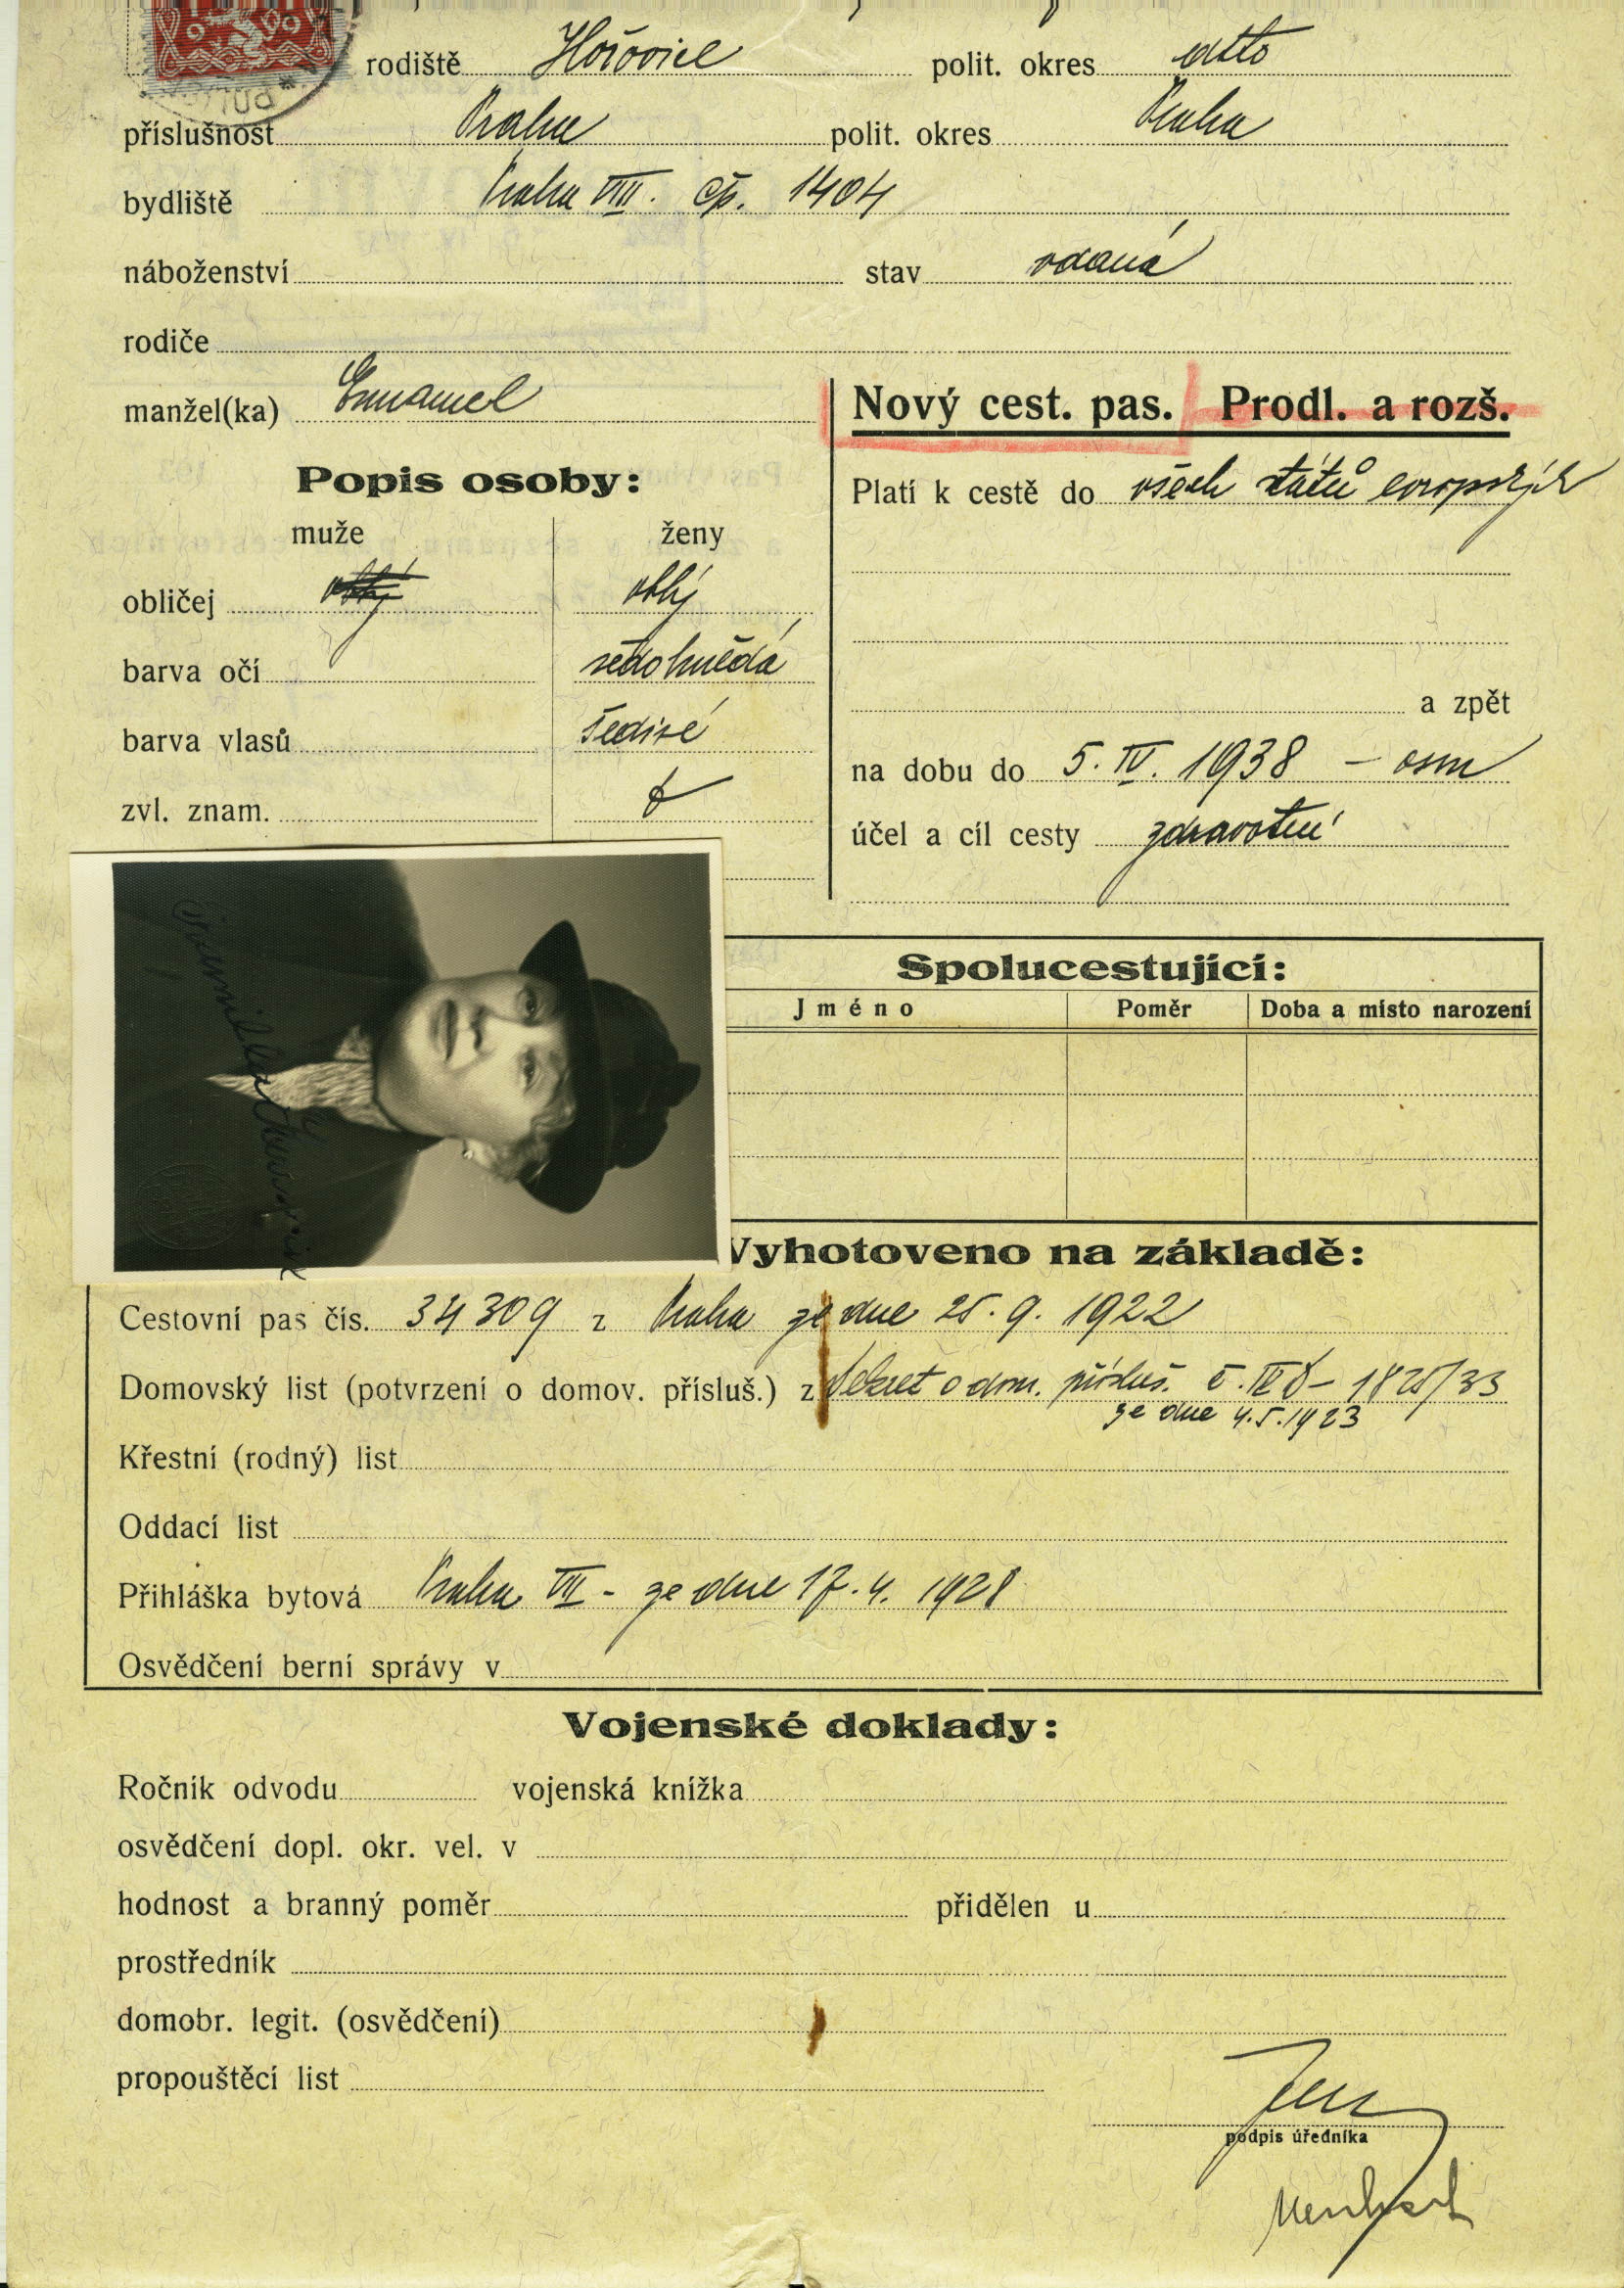 rodiště Hořovice polit. okres dtto
příslušnost Praha polit. okres Praha
bydliště Praha VIII. čp. 1404
náboženství stav vdaná
rodiče
manžel(ka) Emanuel
Nový cest. pas. Prodl. a rozš.
Popis osoby:
Platí k cestě do všech států evropských
muže ženy
obličej oblý oblý
barva očí šedohnědá
barva vlasů šedivé
a zpět
zvl. znam.
na dobu do 5. IV. 1938 – osm
účel a cíl cesty zdravotní
Spolucestující:
Jméno Poměr Doba a místo narození
Vyhotoveno na základě:
Cestovní pas čís. 34309 z Praha ze dne 25. 9. 1922
Domovský list (potvrzení o domov. přísluš.) z Dekret o dom. přísluš. č. 1825/33
ze dne 4.5.1923
Křestní (rodný) list
Oddací list
Přihláška bytová Praha VII – ze dne 17. 4. 1928
Osvědčení berní správy v
Vojenské doklady:
Ročník odvodu vojenská knížka
osvědčení dopl. okr. vel. v
hodnost a branný poměr přidělen u
prostředník
domobr. legit. (osvědčení)
propouštěcí list
podpis úředníka